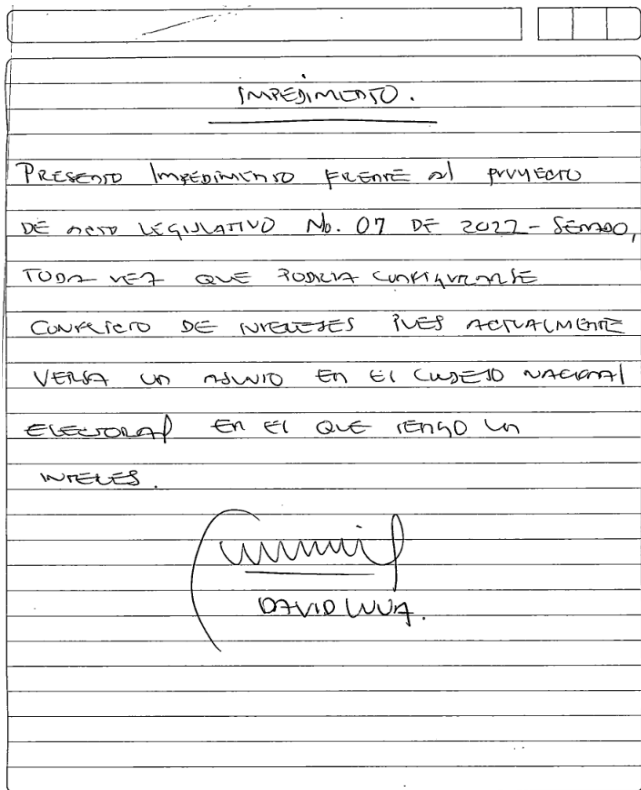 IMPEDIMENTO.
PRESENTO IMPEDIMENTO FRENTE al PROYECTO
DE ACTO LEGISLATIVO No. 07 DE 2022 - SENADO,
TODA VEZ QUE PODRIA CONFIGURARSE
CONFLICTO DE INTERESES PUES ACTUALMENTE
VERSA UN ASUNTO EN El CONSEJO NACIONAl
ELECTORAl EN El QUE TENGO UN
INTERES.
DAVID LUNA.